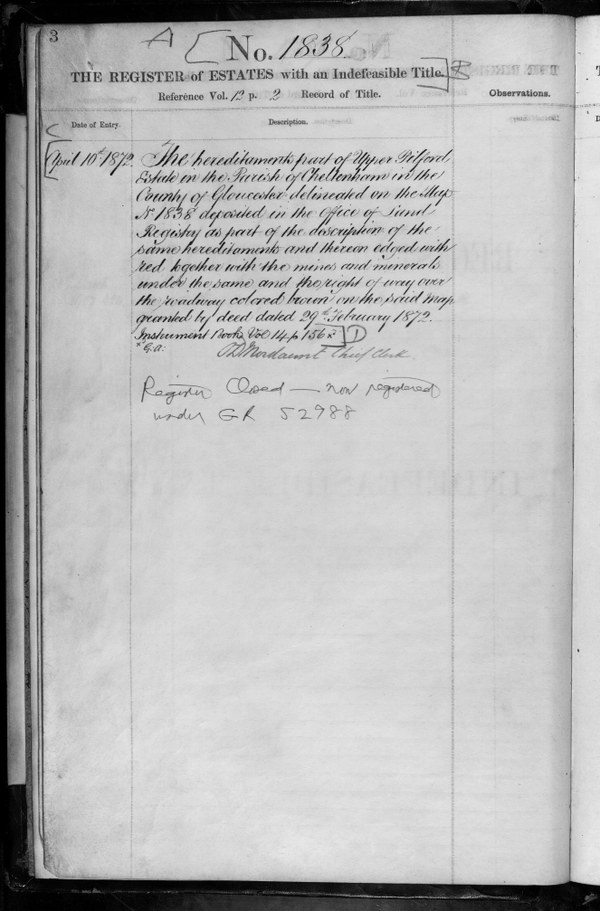 3
A [ No. 1838
THE REGISTER of ESTATES with an Indefeasible Title. ] B
Reference Vol. 12 p. 2 Record of Title.
Observations.
Date of Entry.
Description.
C
[April 10th 1872.
The hereditaments part of Upper Pilford
Estate in the Parish of Cheltenham in the
County of Gloucester delineated on the Map
No 1838 deposited in the Office of Land
Registry as part of the description of the
same hereditaments and thereon edged with
red together with the mines and minerals
under the same and the right of way over
the roadway colored brown on the said map
granted by deed dated 29th February 1872.
Instrument Book Vol 14 p 156 x] D
x G.A.
Mordaunt Chief Clerk.
Register Closed — now registered
under GR 52988